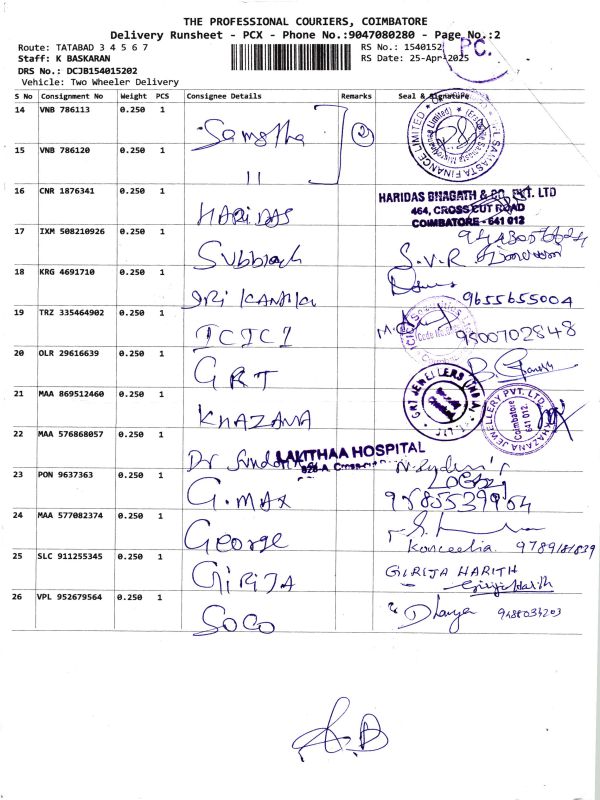 THE PROFESSIONAL COURIERS, COIMBATORE
Delivery Runsheet - PCX - Phone No.:9047080280 - Page No.:2
Route: TATABAD 3 4 5 6 7
RS No.: 1540152
PC.
Staff: K BASKARAN
RS Date: 25-Apr-2025
DRS No.: DCJB154015202
Vehicle: Two Wheeler Delivery
S No Consignment No Weight PCS Consignee Details Remarks Seal & Signature
14 VNB 786113 0.250 1 Samstha 2
15 VNB 786120 0.250 1 11
16 CNR 1876341 0.250 1 HARIDAS
HARIDAS BHAGATH & CO. PVT. LTD
464, CROSS CUT ROAD
COIMBATORE - 641 012
17 IXM 508210926 0.250 1 Subbiah S.V.R
18 KRG 4691710 0.250 1 SRI KANNIKA 9655655004
19 TRZ 335464902 0.250 1 ICICI 9500702848
20 OLR 29616639 0.250 1 GRT
GRT JEWELLERS (INDIA)
21 MAA 869512460 1 0.250 KHAZANA
KHAZANA JEWELLERY PVT. LTD.
Coimbatore
641 012
22 MAA 576868057 0.250 1 Dr
LAKITHAA HOSPITAL
23 PON 9637363 0.250 1 G.MAX 9585539954
24 MAA 577082374 0.250 1 George 9789181839
25 SLC 911255345 0.250 1 GIRIJA GIRIJA HARITH
26 VPL 952679564 0.250 1 SOCO Dhanya 9488034203